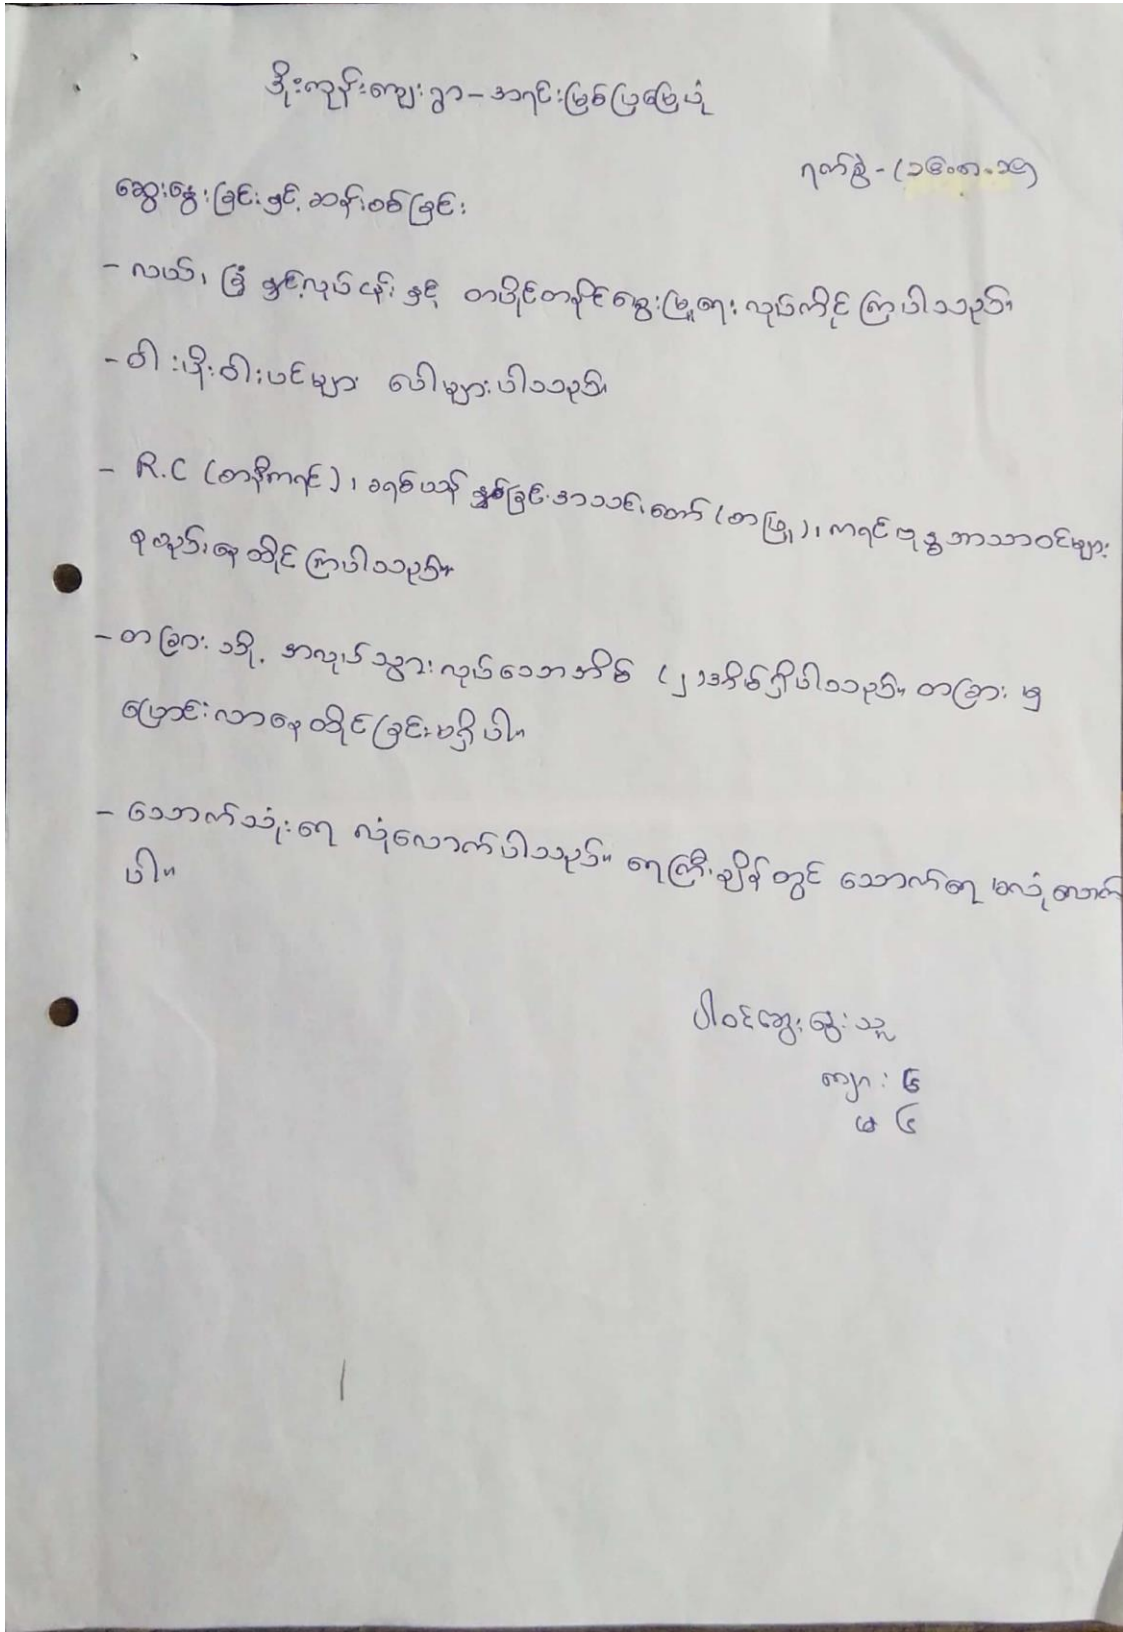 ဒိုးကုန်းကျေးရွာ - အရင်းမြစ်ပြမြေပုံ
ရက်စွဲ -
ဆွေးနွေးခြင်းနှင့် ဆန်းစစ်ခြင်း
- လယ်၊ ခြံ နှင့်လုပ်ငန်း နှင့် တပိုင်တနိုင်မွေးမြူရေး လုပ်ကိုင်ကြပါသည်။
- ဝါးပိုးဝါးပင်များ ပေါများပါသည်။
- R.C (စာနီကရင်)၊ ခရစ်ယာန် နှစ်ခြင်းအသင်းတော် (စာဖြူ)၊ ကရင်ဗုဒ္ဓဘာသာဝင်များ
စုစည်းနေထိုင်ကြပါသည်။
- တခြားသို့ အလုပ်သွားလုပ်သောအိမ် (၂)အိမ်ရှိပါသည်။ တခြား မှ
ပြောင်းလာနေထိုင်ခြင်းမရှိပါ။
- သောက်သုံးရေ လုံလောက်ပါသည်။ ရေကြီးချိန်တွင် သောက်ရေ မလုံလောက်
ပါ။
ပါဝင်ဆွေးနွေးသူ
ကျား ၆
မ ၄